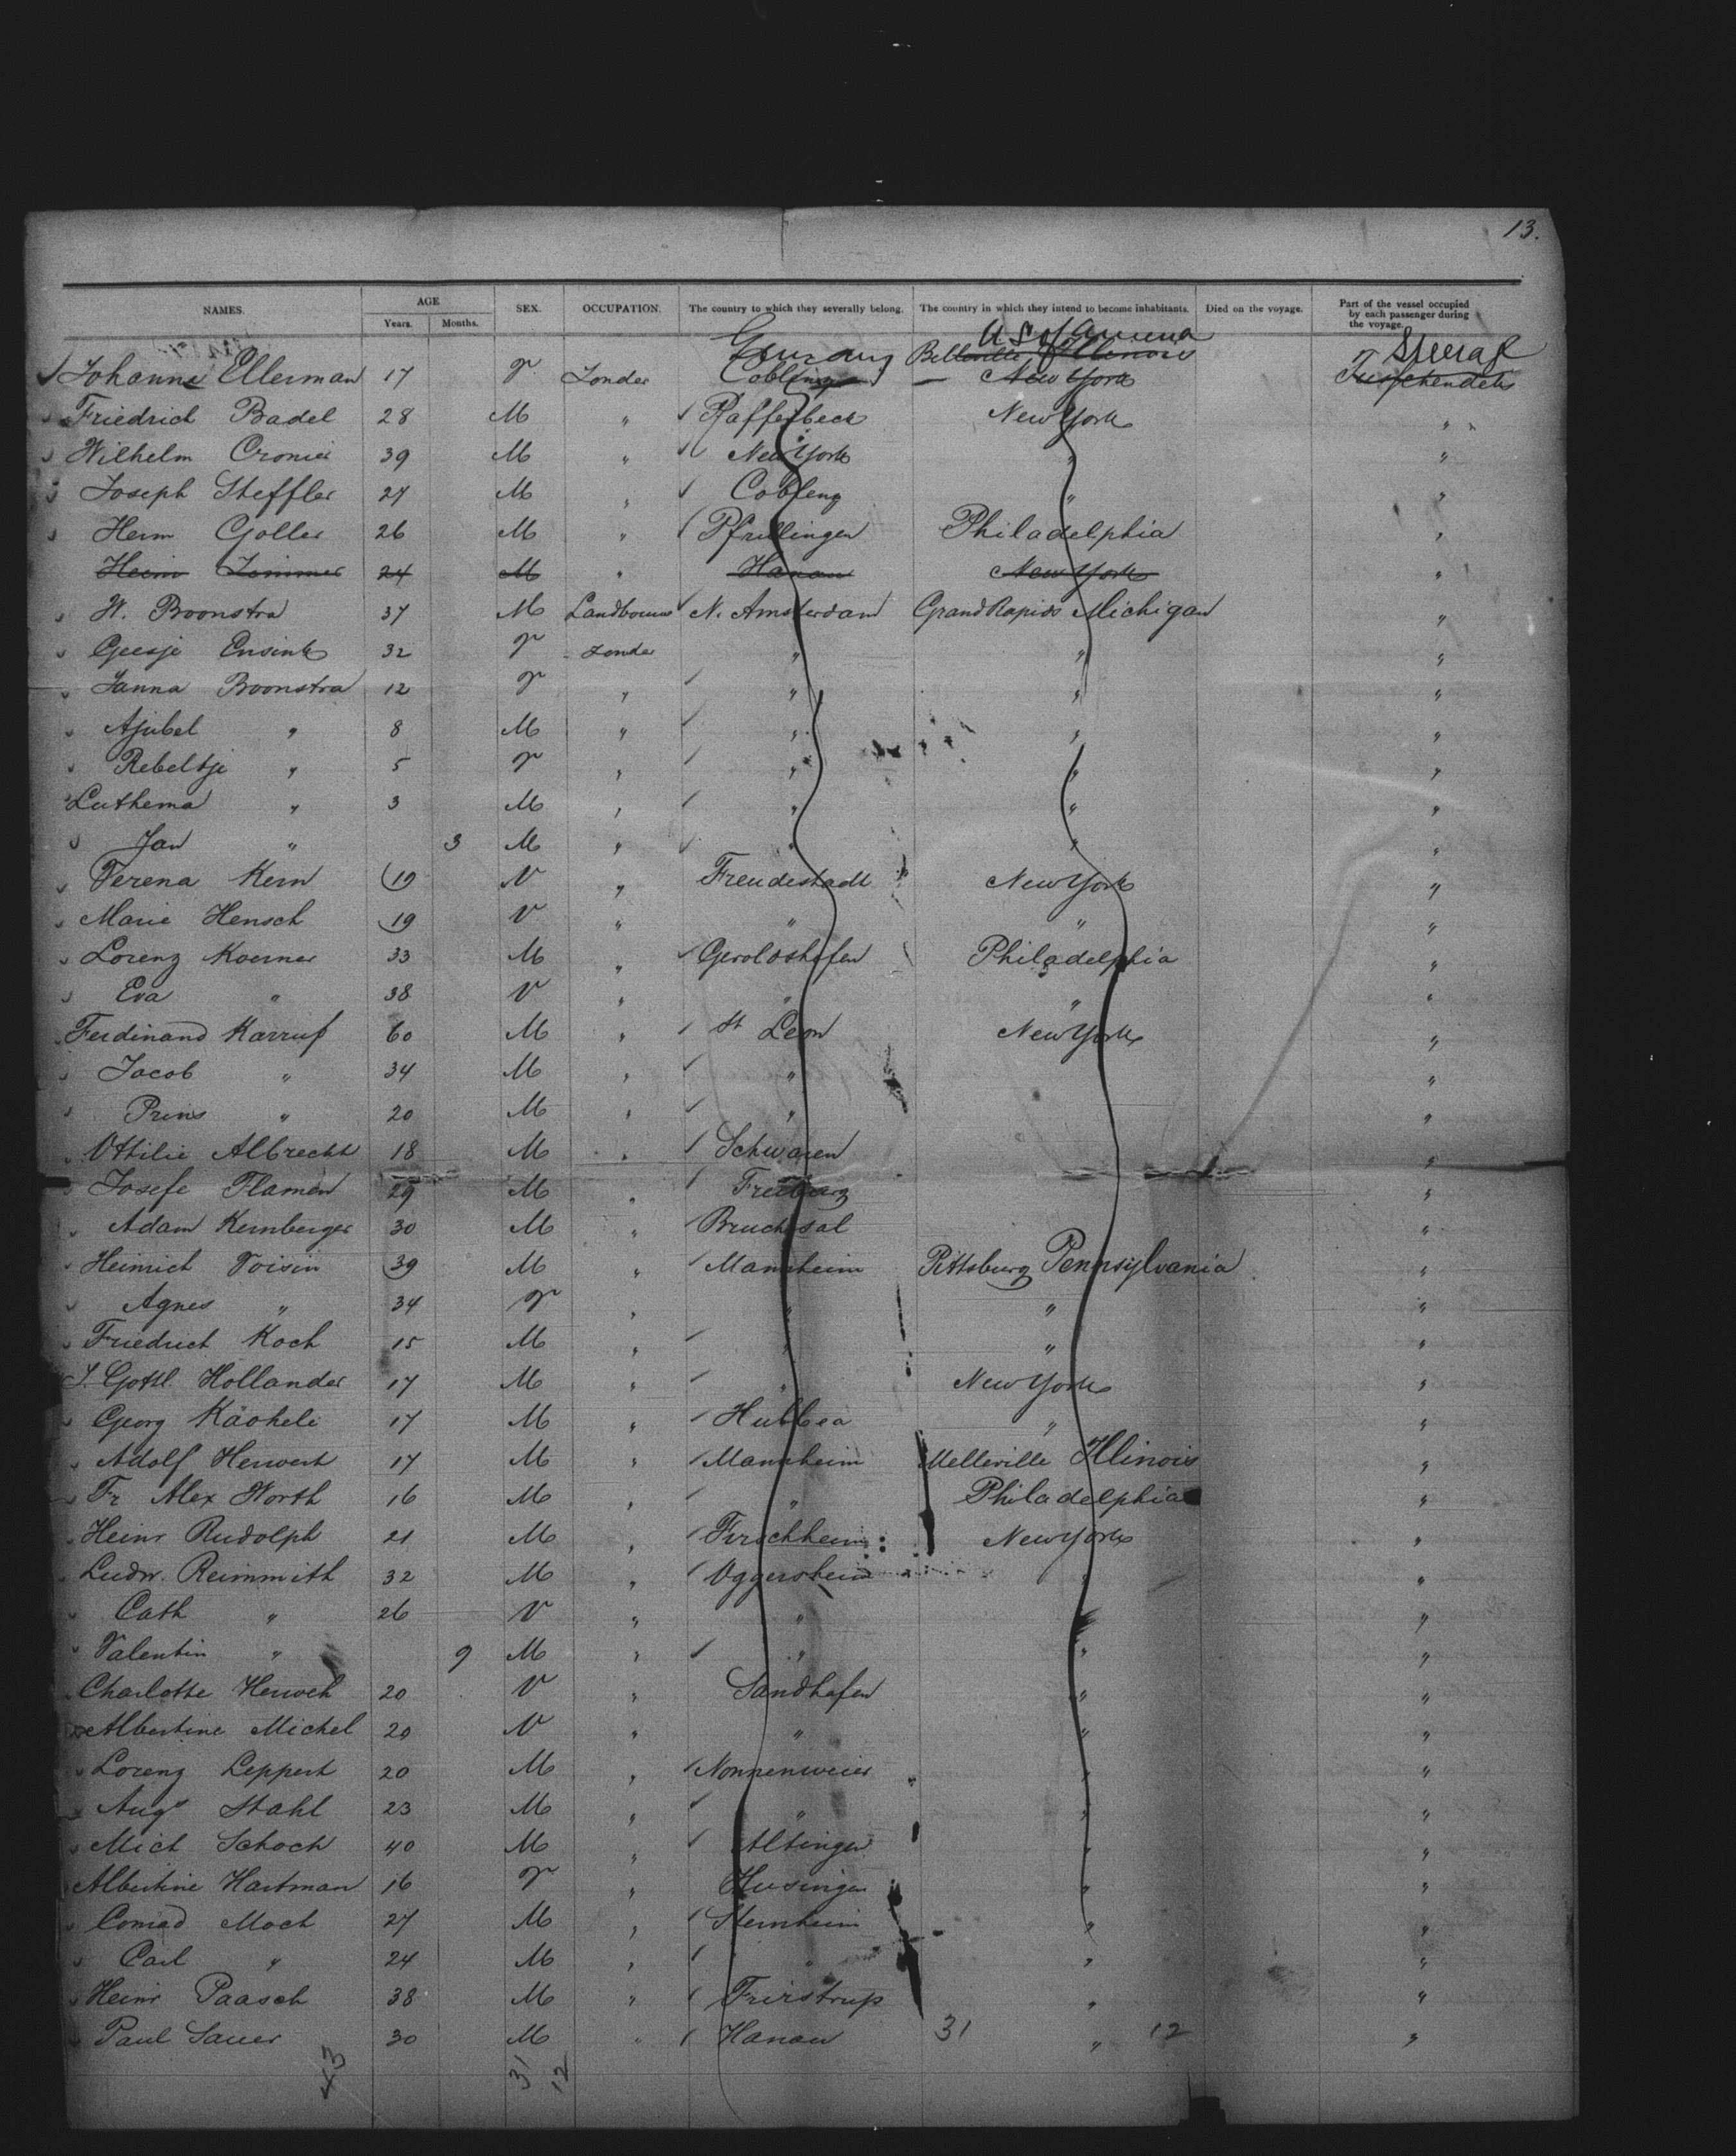 13.
NAMES. AGE SEX. OCCUPATION. The country to which they severally belong. The country in which they intend to become inhabitants. Died on the voyage. Part of the vessel occupied by each passenger during the voyage.
Years. Months.
Germany U S of America
Belleville, Illinois
Johanne Ellerman 17 V Zonder Coblenz New York Tusschendeks
Friedrich Badel 28 M " Paffenbeck New York " "
Wilhelm Cronier 39 M " New York " "
Joseph Steffler 24 M " Coblenz " "
Herm Goller 26 M " Pfullingen Philadelphia "
Heinr Zimmer 24 M " Hanau New York "
W. Boonstra 37 M Landbouwer N. Amsterdam Grand Rapids Michigan "
Geesje Ensink 32 V Zonder " " "
Janna Boonstra 12 V " " " "
Ajubel " 8 M " " " "
Rebeltje " 5 V " " " "
Luthema " 3 M " " " "
Jan " 3 M " " " "
Verena Kern 19 V " Freudestadt New York "
Marie Hensch 19 V " " " "
Lorenz Koerner 33 M " Geroldshofen Philadelphia "
Eva " 38 V " " " "
Ferdinand Karruf 60 M " St Leon New York "
Jacob " 34 M " " "
Prins " 20 M " " "
Ottilie Albrecht 18 M " "
Josefe Flamen 29 M " Freiburg "
Adam Kernberger 30 M " Bruchsal "
Heinrich Voisin 39 M " Mannheim Pittsburg Pennsylvania "
Agnes " 34 V " " " "
Friedrich Koch 15 M " " " "
J. Gottl. Hollander 17 M " " New York "
Georg Kächele 17 M " " "
Adolf Herwert 17 M " Mannheim Melleville Illinois "
Fr Alex Worth 16 M " " Philadelphia "
Heinr Rudolph 21 M " New York "
Ludw. Reimmith 32 M " Oggersheim " "
Cath " 26 V " " "
Valentin " 9 M " " " "
Charlotte Herweh 20 V " Sandhofen " "
Albertine Michel 20 V " " " "
Lorenz Leppert 20 M " Nonnenweier " "
Augs Stahl 23 M " " " "
Mich Schoch 40 M " Altingen " "
Albertine Hartman 16 V " Husingen " "
Conrad Moch 27 M " Sternheim " "
Carl " 24 M " " " "
Heinr Paasch 38 M " Frirstrup " "
Paul Sauer 30 M " Hanau 31 " 12 "
43 31 12